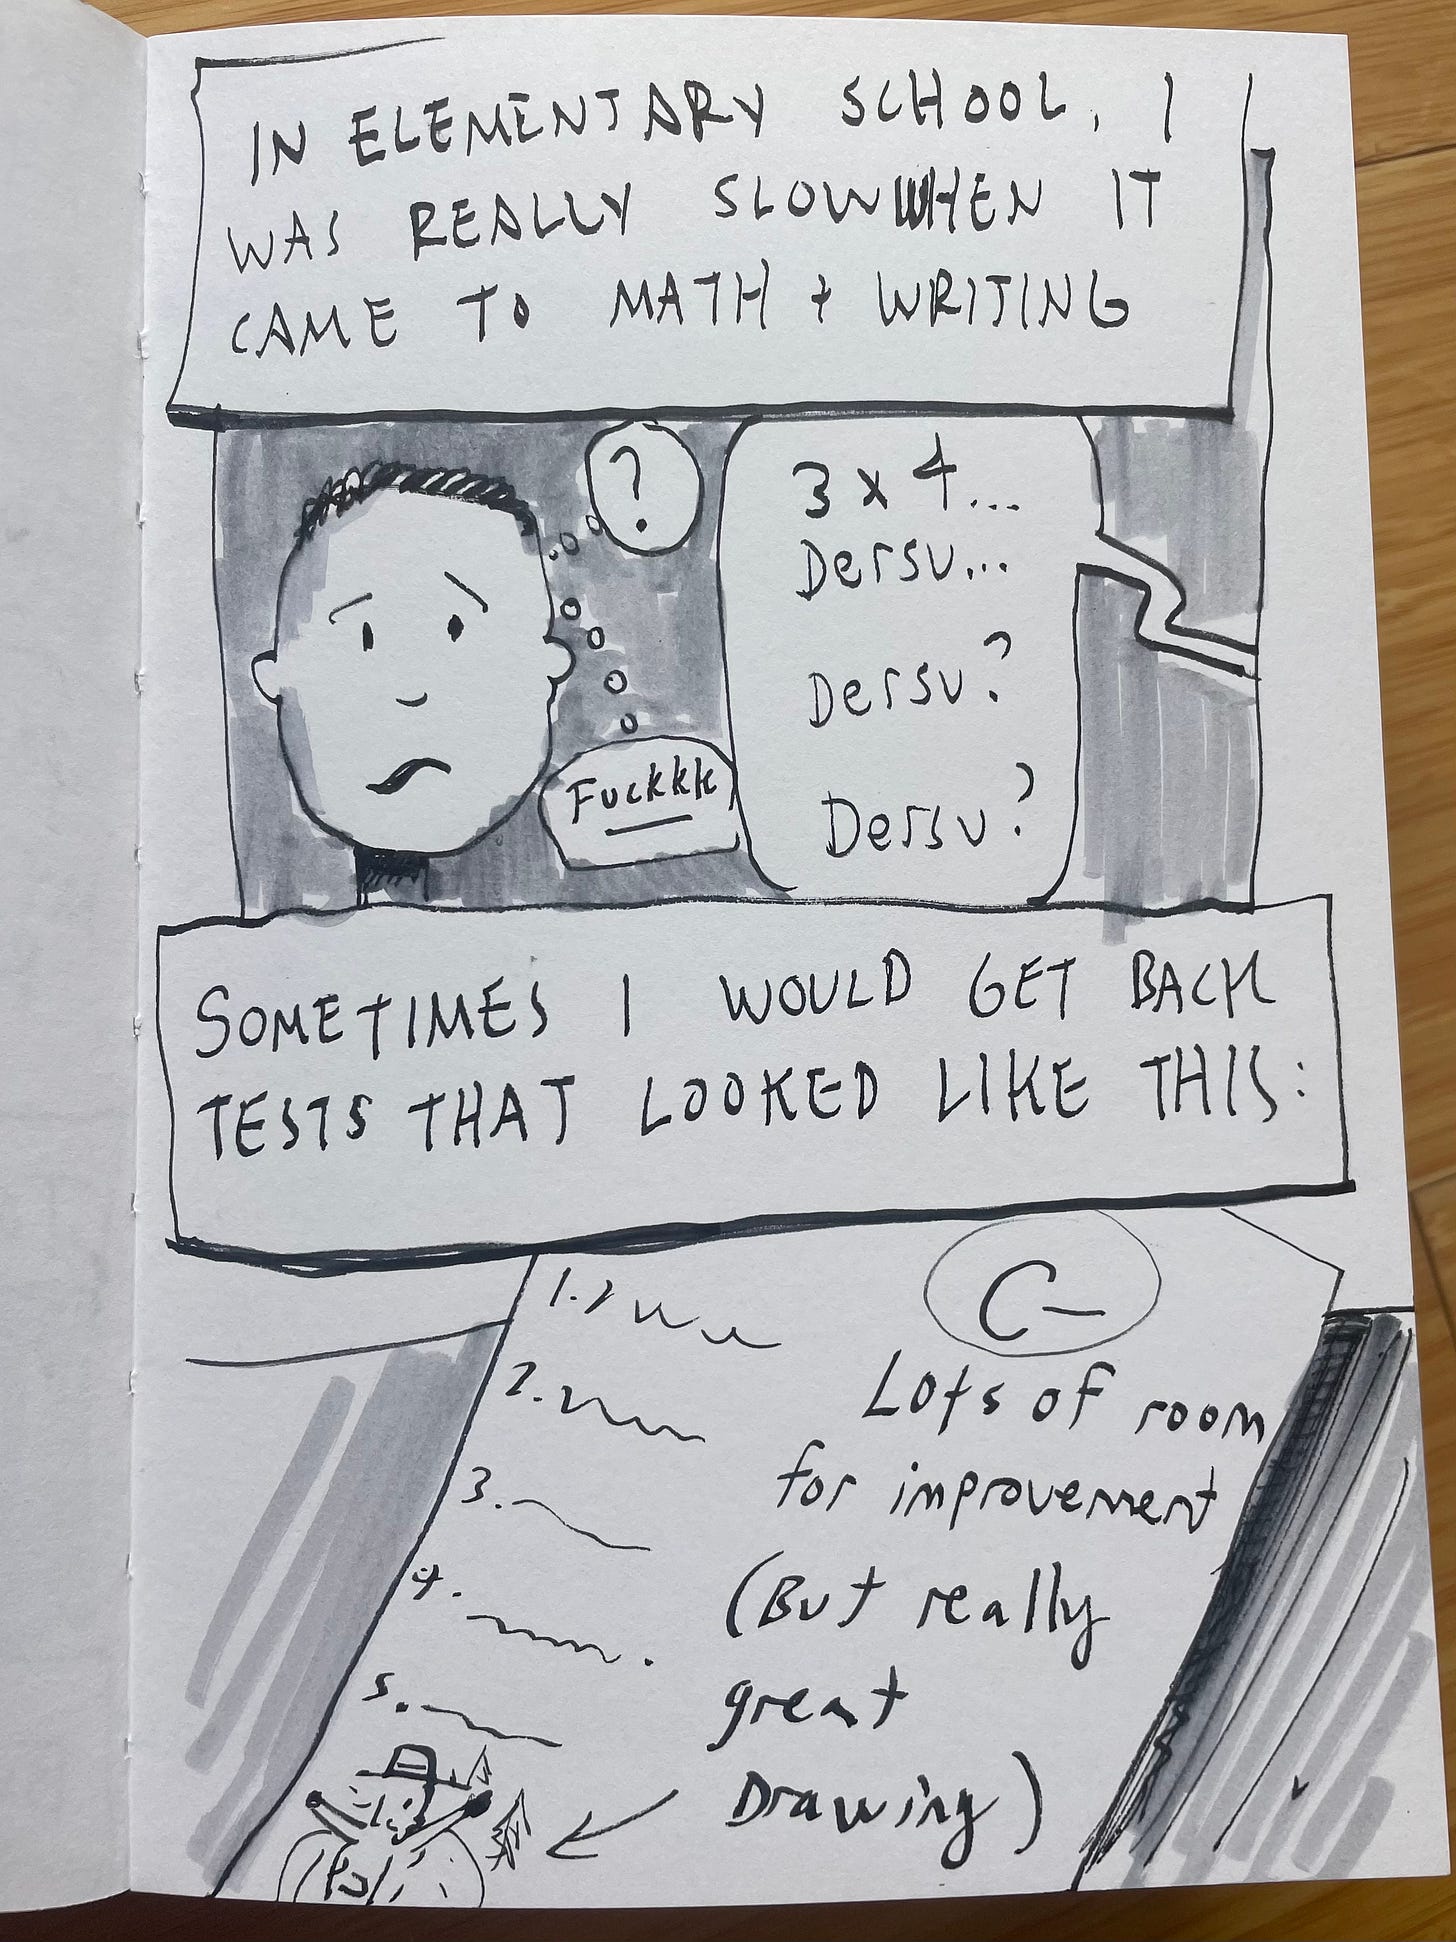 IN ELEMENTARY SCHOOL, I
WAS REALLY SLOW WHEN IT
CAME TO MATH + WRITING
?
3 x 4...
Dersu...
Dersu?
Dersu?
Fuckkk
SOMETIMES I WOULD GET BACK
TESTS THAT LOOKED LIKE THIS:
C-
1.
2.
3.
4.
5.
Lots of room
for improvement
(But really
great
Drawing)